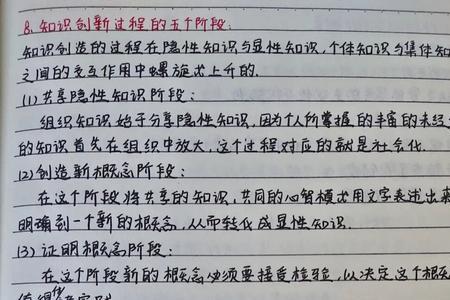 8. 知识创新过程的五个阶段:
知识创造的过程在隐性知识与显性知识,个体知识与集体知
之间的交互作用中螺旋式上升的.
(1) 共享隐性知识阶段:
组织知识始于分享隐性知识,因为个人所掌握的丰富的未经
的知识首先在组织中放大,这个过程对应的就是社会化.
(2) 创造新概念阶段:
在这个阶段将共享的知识,共同的心智模式用文字表述出来
明确到一个新的概念,从而转化成显性知识.
(3) 证明概念阶段:
在这个阶段新的概念必须要接受检验,以决定这个概念
值得